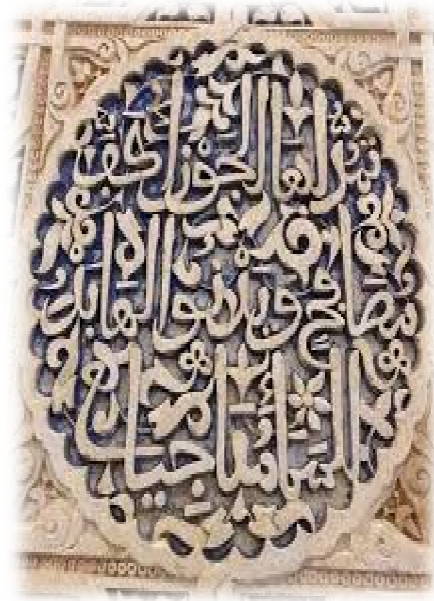 تمدّ لها الجوزاء كفّ
مصافح ويدنو لها بدر
السماء مناجيا